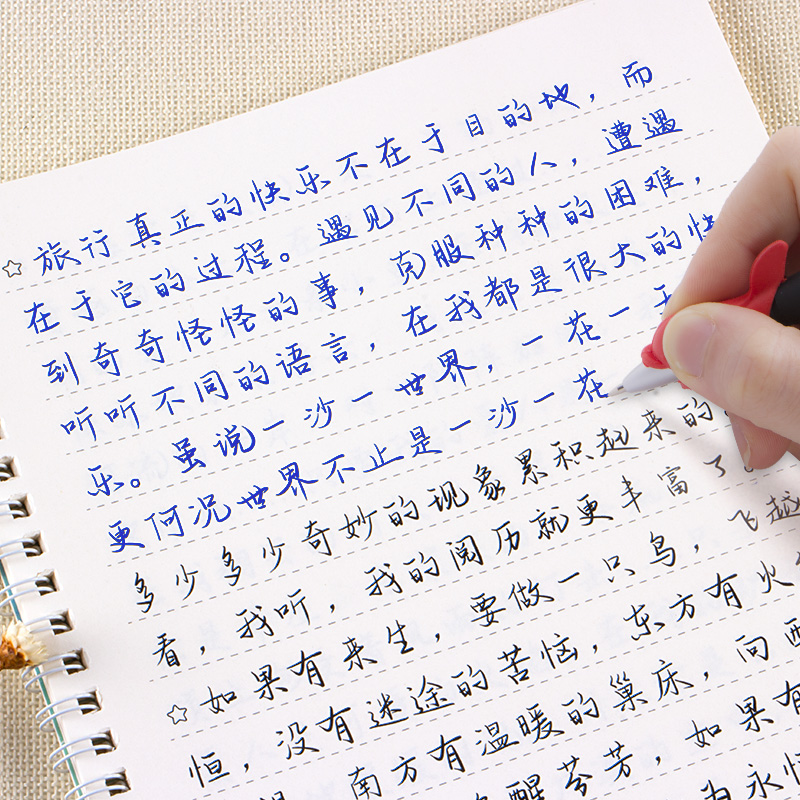 ☆旅行真正的快乐不在于目的地，而
在于它的过程。遇见不同的人，遭遇
到奇奇怪怪的事，克服种种的困难，
听听不同的语言，在我都是很大的快
乐。虽说一沙一世界，一花一天
更何况世界不止是一沙一花
多少多少奇妙的现象累积起来的
看，我听，我的阅历就更丰富了。
☆如果有来生，要做一只鸟，飞越
恒，没有迷途的苦恼，东方有火
南方有温暖的巢床，向西
醒芬芳，如果有
为永恒